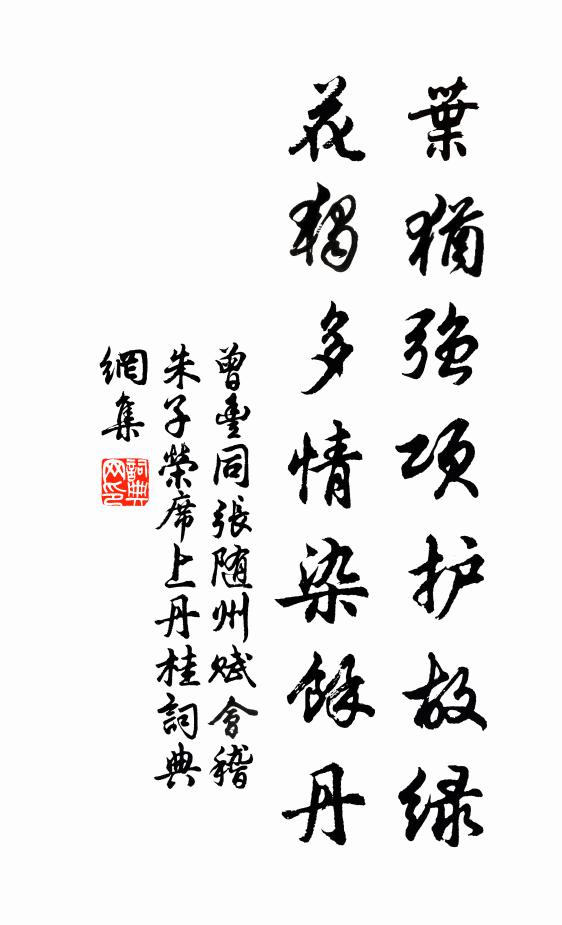 葉猶強项护故緑
花獨多情染餘丹
曾豊同張随州赋會稽
朱子榮席上丹桂詞典
網集
詞典網印